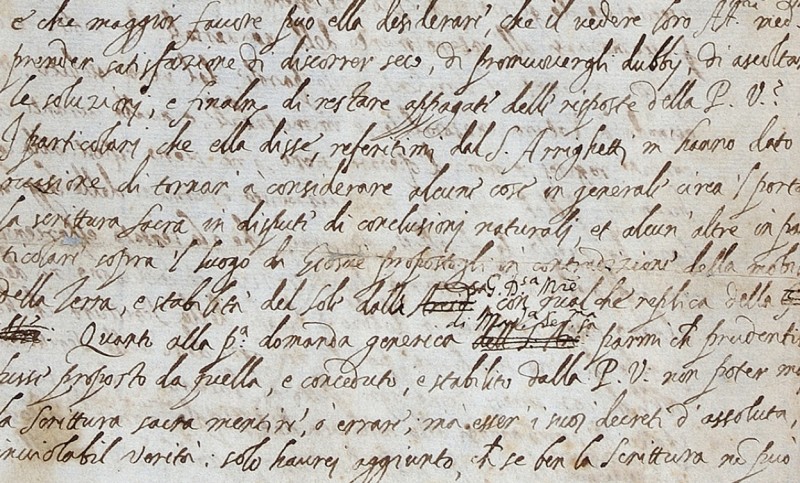 e che maggior favore può ella desiderare, che il vedere loro Alt. med
prender satisfazione di discorrer seco, di promuovergli dubbij, di ascoltar
le soluzioni, e finalm. di restare appagate delle risposte della P. V.?
I particolari che ella disse, referitimi dal S. Arrighetti m hanno dato
occasione di tornar à considerare alcune cose in generale circa 'l porta
la scrittura sacra in dispute di conclusioni naturali, et alcun' altre in par
ticolare sopra 'l luogo di Giosuè propostogli in contradizione della mobi
della Terra, e stabilità del Sole dalla con qualche replica della
Quanto alla p.ª domanda generica di Mad.ª Ser.ma parmi ch prudentis
fusse proposto da quella, e conceduto, e stabilito dalla P. V. non poter mai
la Scrittura sacra mentire, ò errare, mà esser i suoi decreti d'assoluta,
inviolabil verità: solo haurei aggiunto, ch se ben la Scrittura nō può